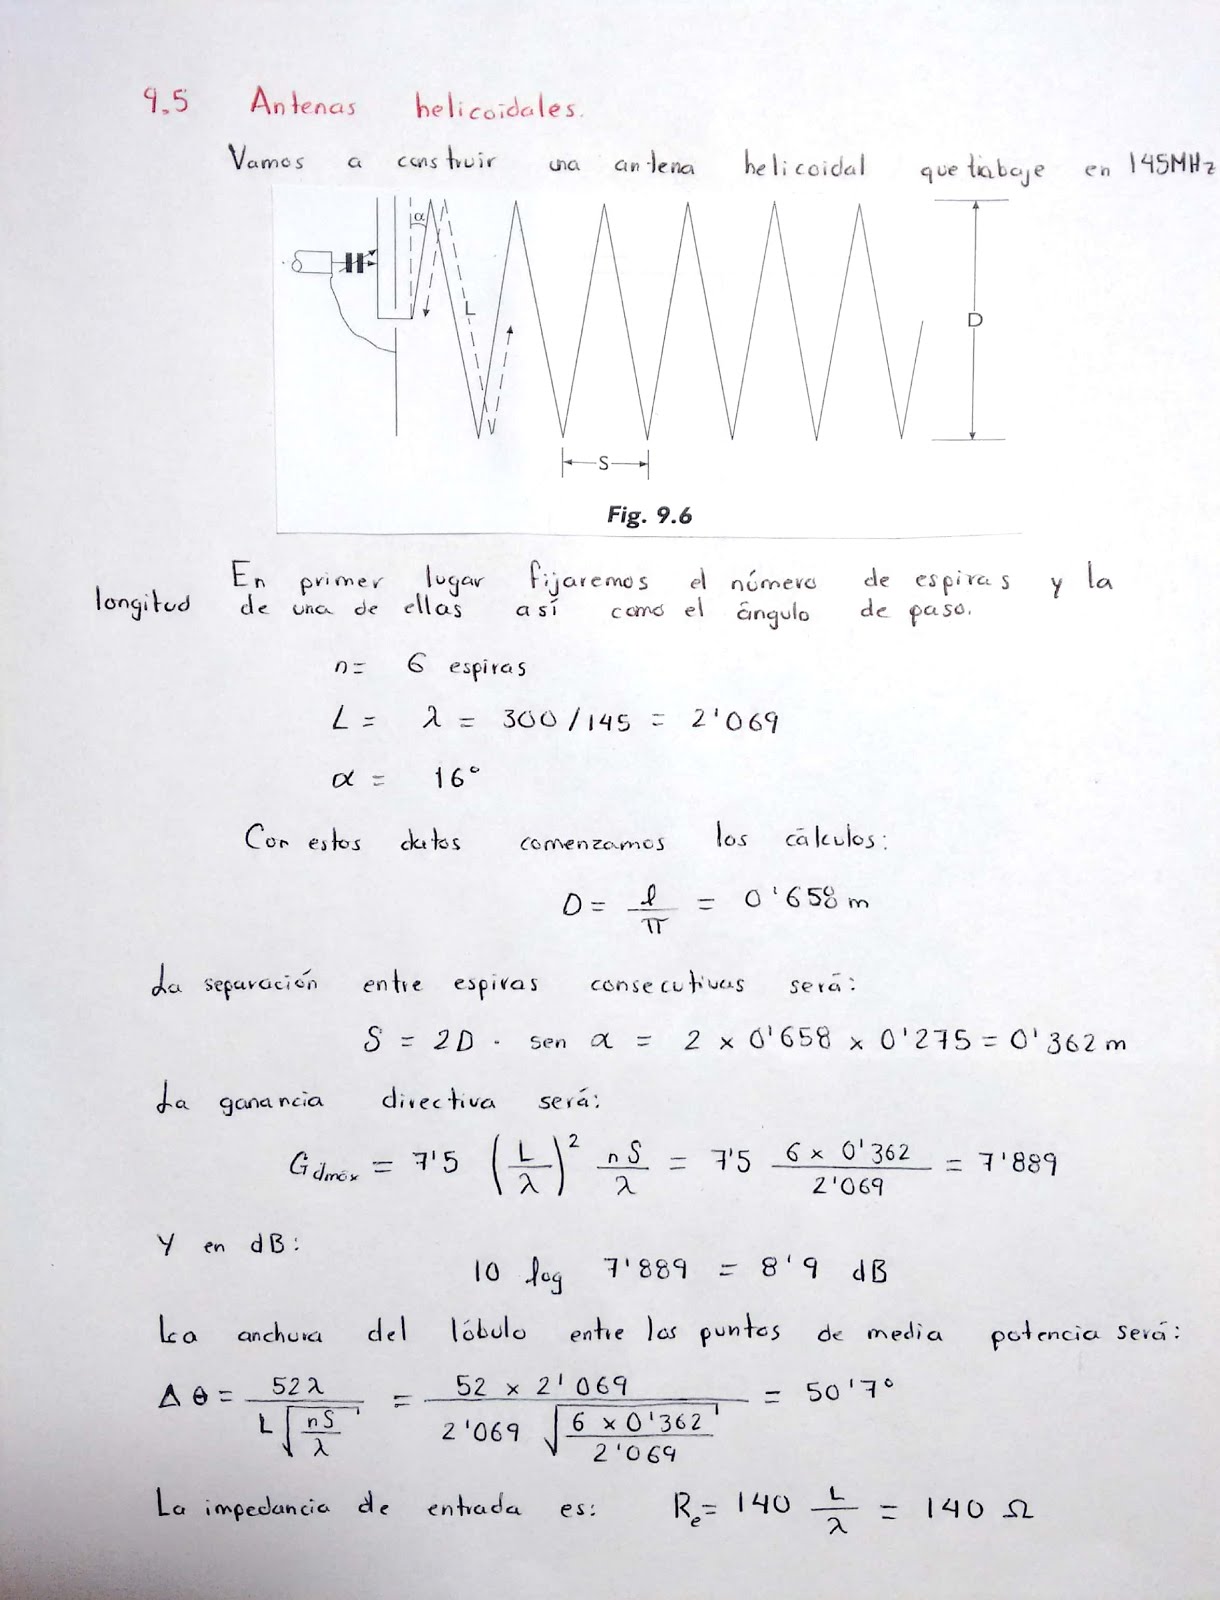 9.5 Antenas helicoidales.
Vamos a construir una antena helicoidal que trabaje en 145MHz
α
L
D
S
Fig. 9.6
En primer lugar fijaremos el número de espiras y la
longitud de una de ellas así como el ángulo de paso.
n= 6 espiras
L = λ = 300/145 = 2'069
α = 16°
Con estos datos comenzamos los cálculos:
D = l/π = 0'658 m
La separación entre espiras consecutivas será:
S = 2D · sen α = 2 × 0'658 × 0'275 = 0'362 m
La ganancia directiva será:
Gdmáx = 7'5 (L/λ)² nS/λ = 7'5 6 × 0'362/2'069 = 7'889
Y en dB:
10 log 7'889 = 8'9 dB
La anchura del lóbulo entre los puntos de media potencia será:
Δθ = 52λ/L√(nS/λ) = 52 × 2'069/2'069 √(6 × 0'362/2'069) = 50'7°
La impedancia de entrada es: Re = 140 L/λ = 140 Ω